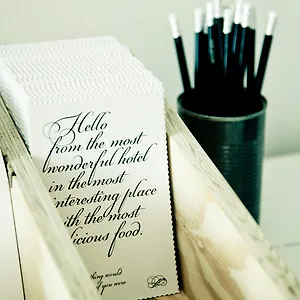 Hello
from the most
wonderful hotel
in the most
interesting place
with the most
licious food.
thing would
if you were